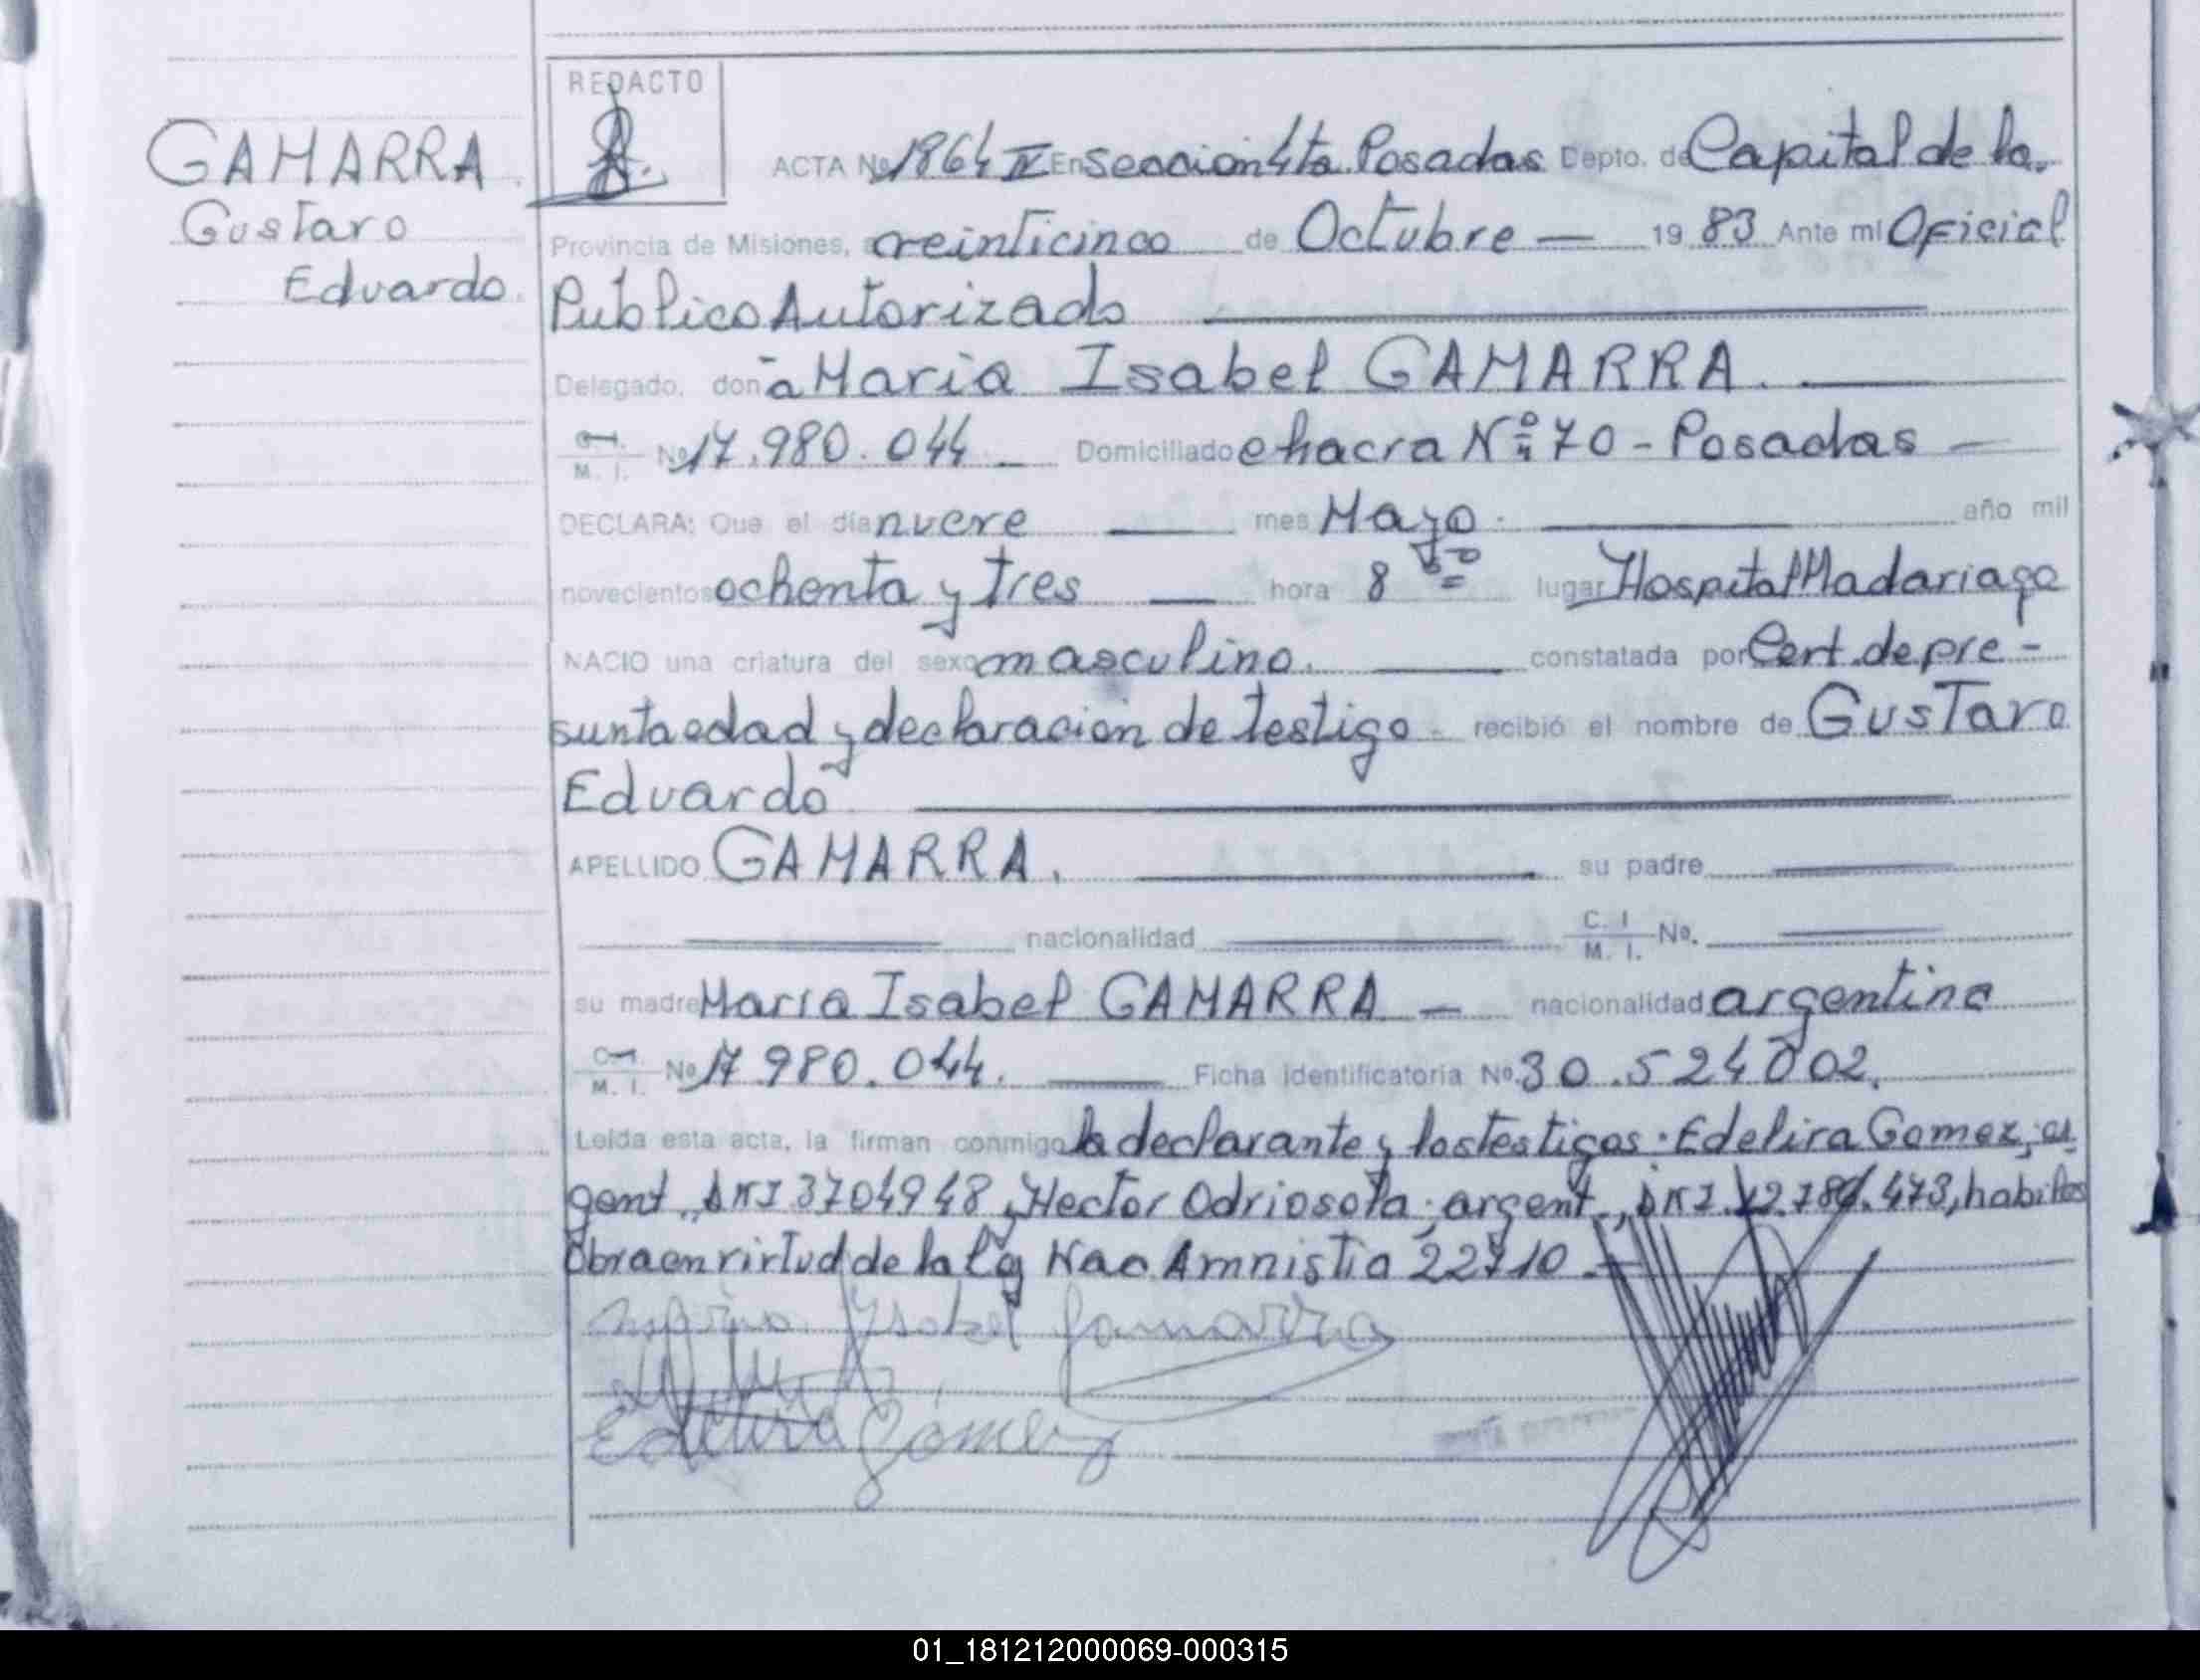 REDACTO
GAMARRA
Gustavo
Eduardo.
ACTA No 1864 IV En seccion 4ta. Posadas Depto. de Capital de la.
Provincia de Misiones, a veinticinco de Octubre — 19 83 Ante mi Oficial
Publico Autorizado
Delegado, don a Maria Isabel GAMARRA.
M. I. No 17.980.044 Domiciliado chacra Nº 70 - Posadas —
DECLARA: Que el día nueve mes Mayo. año mil
novecientos ochenta y tres hora 8 lugar Hospital Madariaga
NACIO una criatura del sexo masculino. constatada por Cert. de pre-
sunta edad y declaracion de testigo - recibió el nombre de Gustavo
Eduardo
APELLIDO GAMARRA. su padre
nacionalidad C. I M. I. No.
su madre Maria Isabel GAMARRA — nacionalidad argentina
M. I. No 17.980.044. Ficha identificatoria No. 30.524002.
Leída esta acta, la firman conmigo la declarante y los testigos. Edelira Gomez, ar
gent., DNI 3704948, Hector Odriosola, argent., DNI 473, habiles
Obra en virtud de la Ley Nac Amnistia 22710.
Maria Isabel Gamarra
Edelvira Gómez
01_181212000069-000315